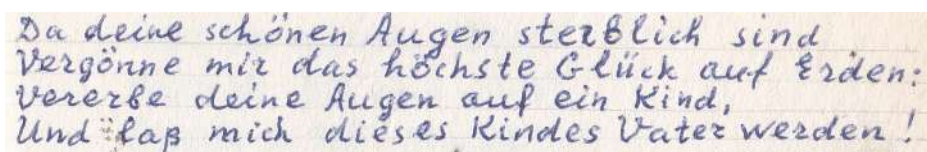 Da deine schönen Augen sterblich sind
Vergönne mir das höchste Glück auf Erden:
Vererbe deine Augen auf ein Kind,
Und laß mich dieses Kindes Vater werden!